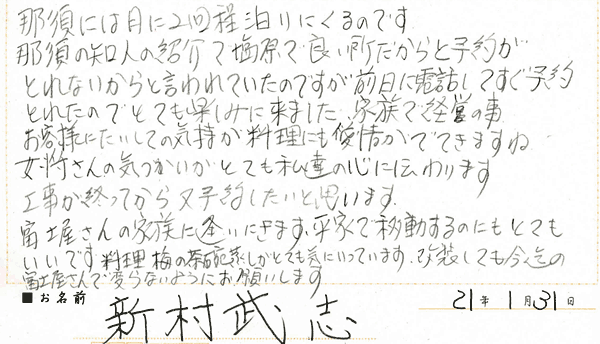 那須には月に2回程泊りにくるのです
那須の知人の紹介で塩原で良い所だからと予約が
とれないからと言われていたのですが前日に電話してすぐ予約
とれたのでとても楽しみに来ました。家族で経営の事
お客様にたいしての気持が料理にも愛情がでてきますね
女将さんの気づかいがとても私達の心に伝わります
工事が終ってから又予約したいと思います。
富士屋さんの家族に逢いにきます。平家で移動するのにもとても
いいです 料理 梅の茶碗蒸しがとても気にいっています。改装しても今迄の
富士屋さんで変らないようにお願いします
■お名前 新村武志 21年1月31日